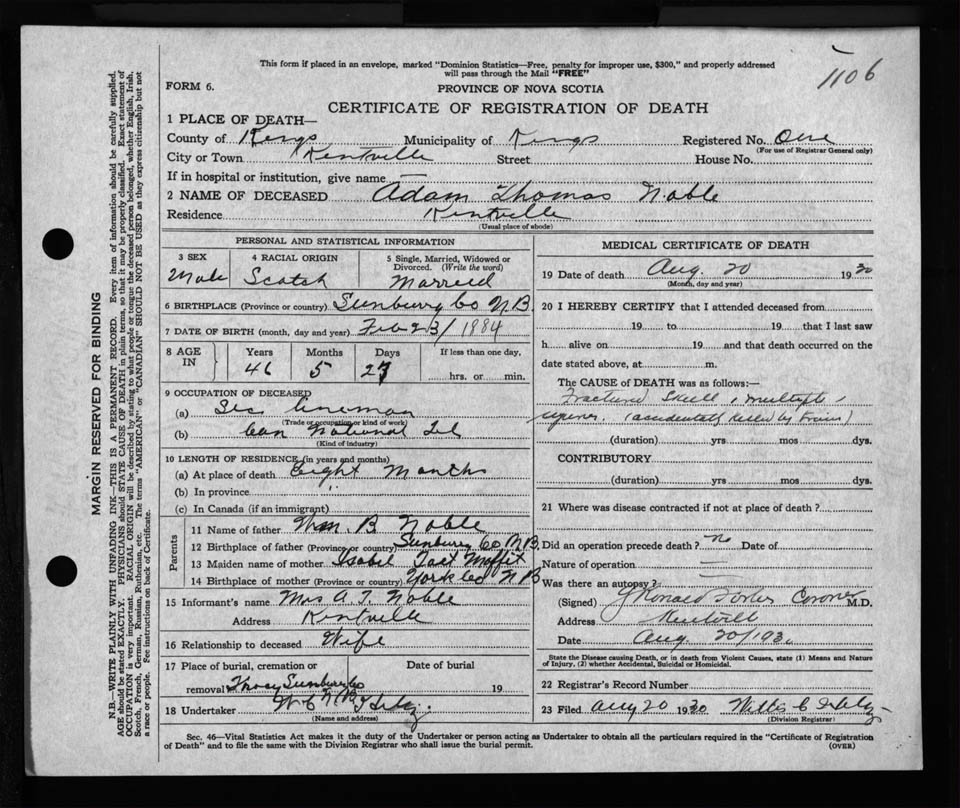 This form if placed in an envelope, marked "Dominion Statistics—Free, penalty for improper use, $300," and properly addressed
will pass through the Mail "FREE"
1106
FORM 6.
PROVINCE OF NOVA SCOTIA
CERTIFICATE OF REGISTRATION OF DEATH
1 PLACE OF DEATH—
County of Kings Municipality of Kings Registered No. One
(For use of Registrar General only)
City or Town Kentville Street House No.
If in hospital or institution, give name
2 NAME OF DECEASED Adam Thomas Noble
Residence Kentville
(Usual place of abode)
PERSONAL AND STATISTICAL INFORMATION
3 SEX 4 RACIAL ORIGIN 5 Single, Married, Widowed or Divorced. (Write the word)
Male Scotch Married
6 BIRTHPLACE (Province or country) Sunbury Co N.B.
7 DATE OF BIRTH (month, day and year) Feb 23/1884
8 AGE IN Years Months Days If less than one day,
46 5 27 hrs. or min.
9 OCCUPATION OF DECEASED
(a) Sec Lineman
(Trade or occupation or kind of work)
(b) Can National Tel
(Kind of industry)
10 LENGTH OF RESIDENCE (in years and months)
(a) At place of death Eight Months
(b) In province "
(c) In Canada (if an immigrant)
Parents
11 Name of father Wm. B Noble
12 Birthplace of father (Province or country) Sunbury Co N.B.
13 Maiden name of mother Isabel Moffit
14 Birthplace of mother (Province or country) York Co N B
15 Informant's name Mrs A. T. Noble
Address Kentville
16 Relationship to deceased Wife
17 Place of burial, cremation or Date of burial
removal Sunbury Co N.B. 19
18 Undertaker W C
(Name and address)
MEDICAL CERTIFICATE OF DEATH
19 Date of death Aug. 20 1930
(Month, day and year)
20 I HEREBY CERTIFY that I attended deceased from
19 to 19 that I last saw
h alive on 19 and that death occurred on the
date stated above, at m.
The CAUSE OF DEATH was as follows:—
Fractured Skull, multiple
(accidentally killed by train)
(duration) yrs mos dys.
CONTRIBUTORY
(duration) yrs. mos dys.
21 Where was disease contracted if not at place of death?
Did an operation precede death? No Date of
Nature of operation —
Was there an autopsy? —
(Signed) J Ronald Coroner M.D.
Address Kentville
Date Aug 20/1930
State the Disease causing Death, or in death from Violent Causes, state (1) Means and Nature
of Injury, (2) whether Accidental, Suicidal or Homicidal.
22 Registrar's Record Number
23 Filed Aug 20 1930 C
(Division Registrar)
Sec. 46—Vital Statistics Act makes it the duty of the Undertaker or person acting as Undertaker to obtain all the particulars required in the "Certificate of Registration
of Death" and to file the same with the Division Registrar who shall issue the burial permit. (OVER)
MARGIN RESERVED FOR BINDING
N.B.—WRITE PLAINLY WITH UNFADING INK—THIS IS A PERMANENT RECORD. Every item of information should be carefully supplied.
AGE should be stated EXACTLY. PHYSICIANS should STATE CAUSE OF DEATH in plain terms, so that it may be properly classified. Exact statement of
OCCUPATION is very important. RACIAL ORIGIN will be described by stating to what people or tongue the deceased person belonged, whether English, Irish,
Scotch, French, German, Russian, Ruthenian, etc. The terms "AMERICAN" or "CANADIAN" SHOULD NOT BE USED as they express citizenship but not
a race or people. Fee instructions on back of Certificate.